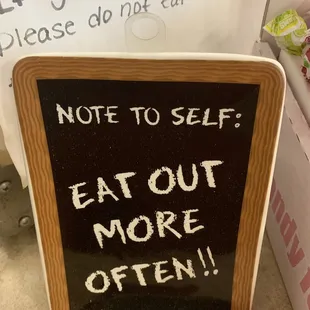 please do not eat
NOTE TO SELF:
EAT OUT
MORE
OFTEN!!